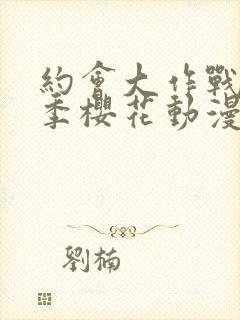 約會大作戰
季櫻花動漫
劉楠